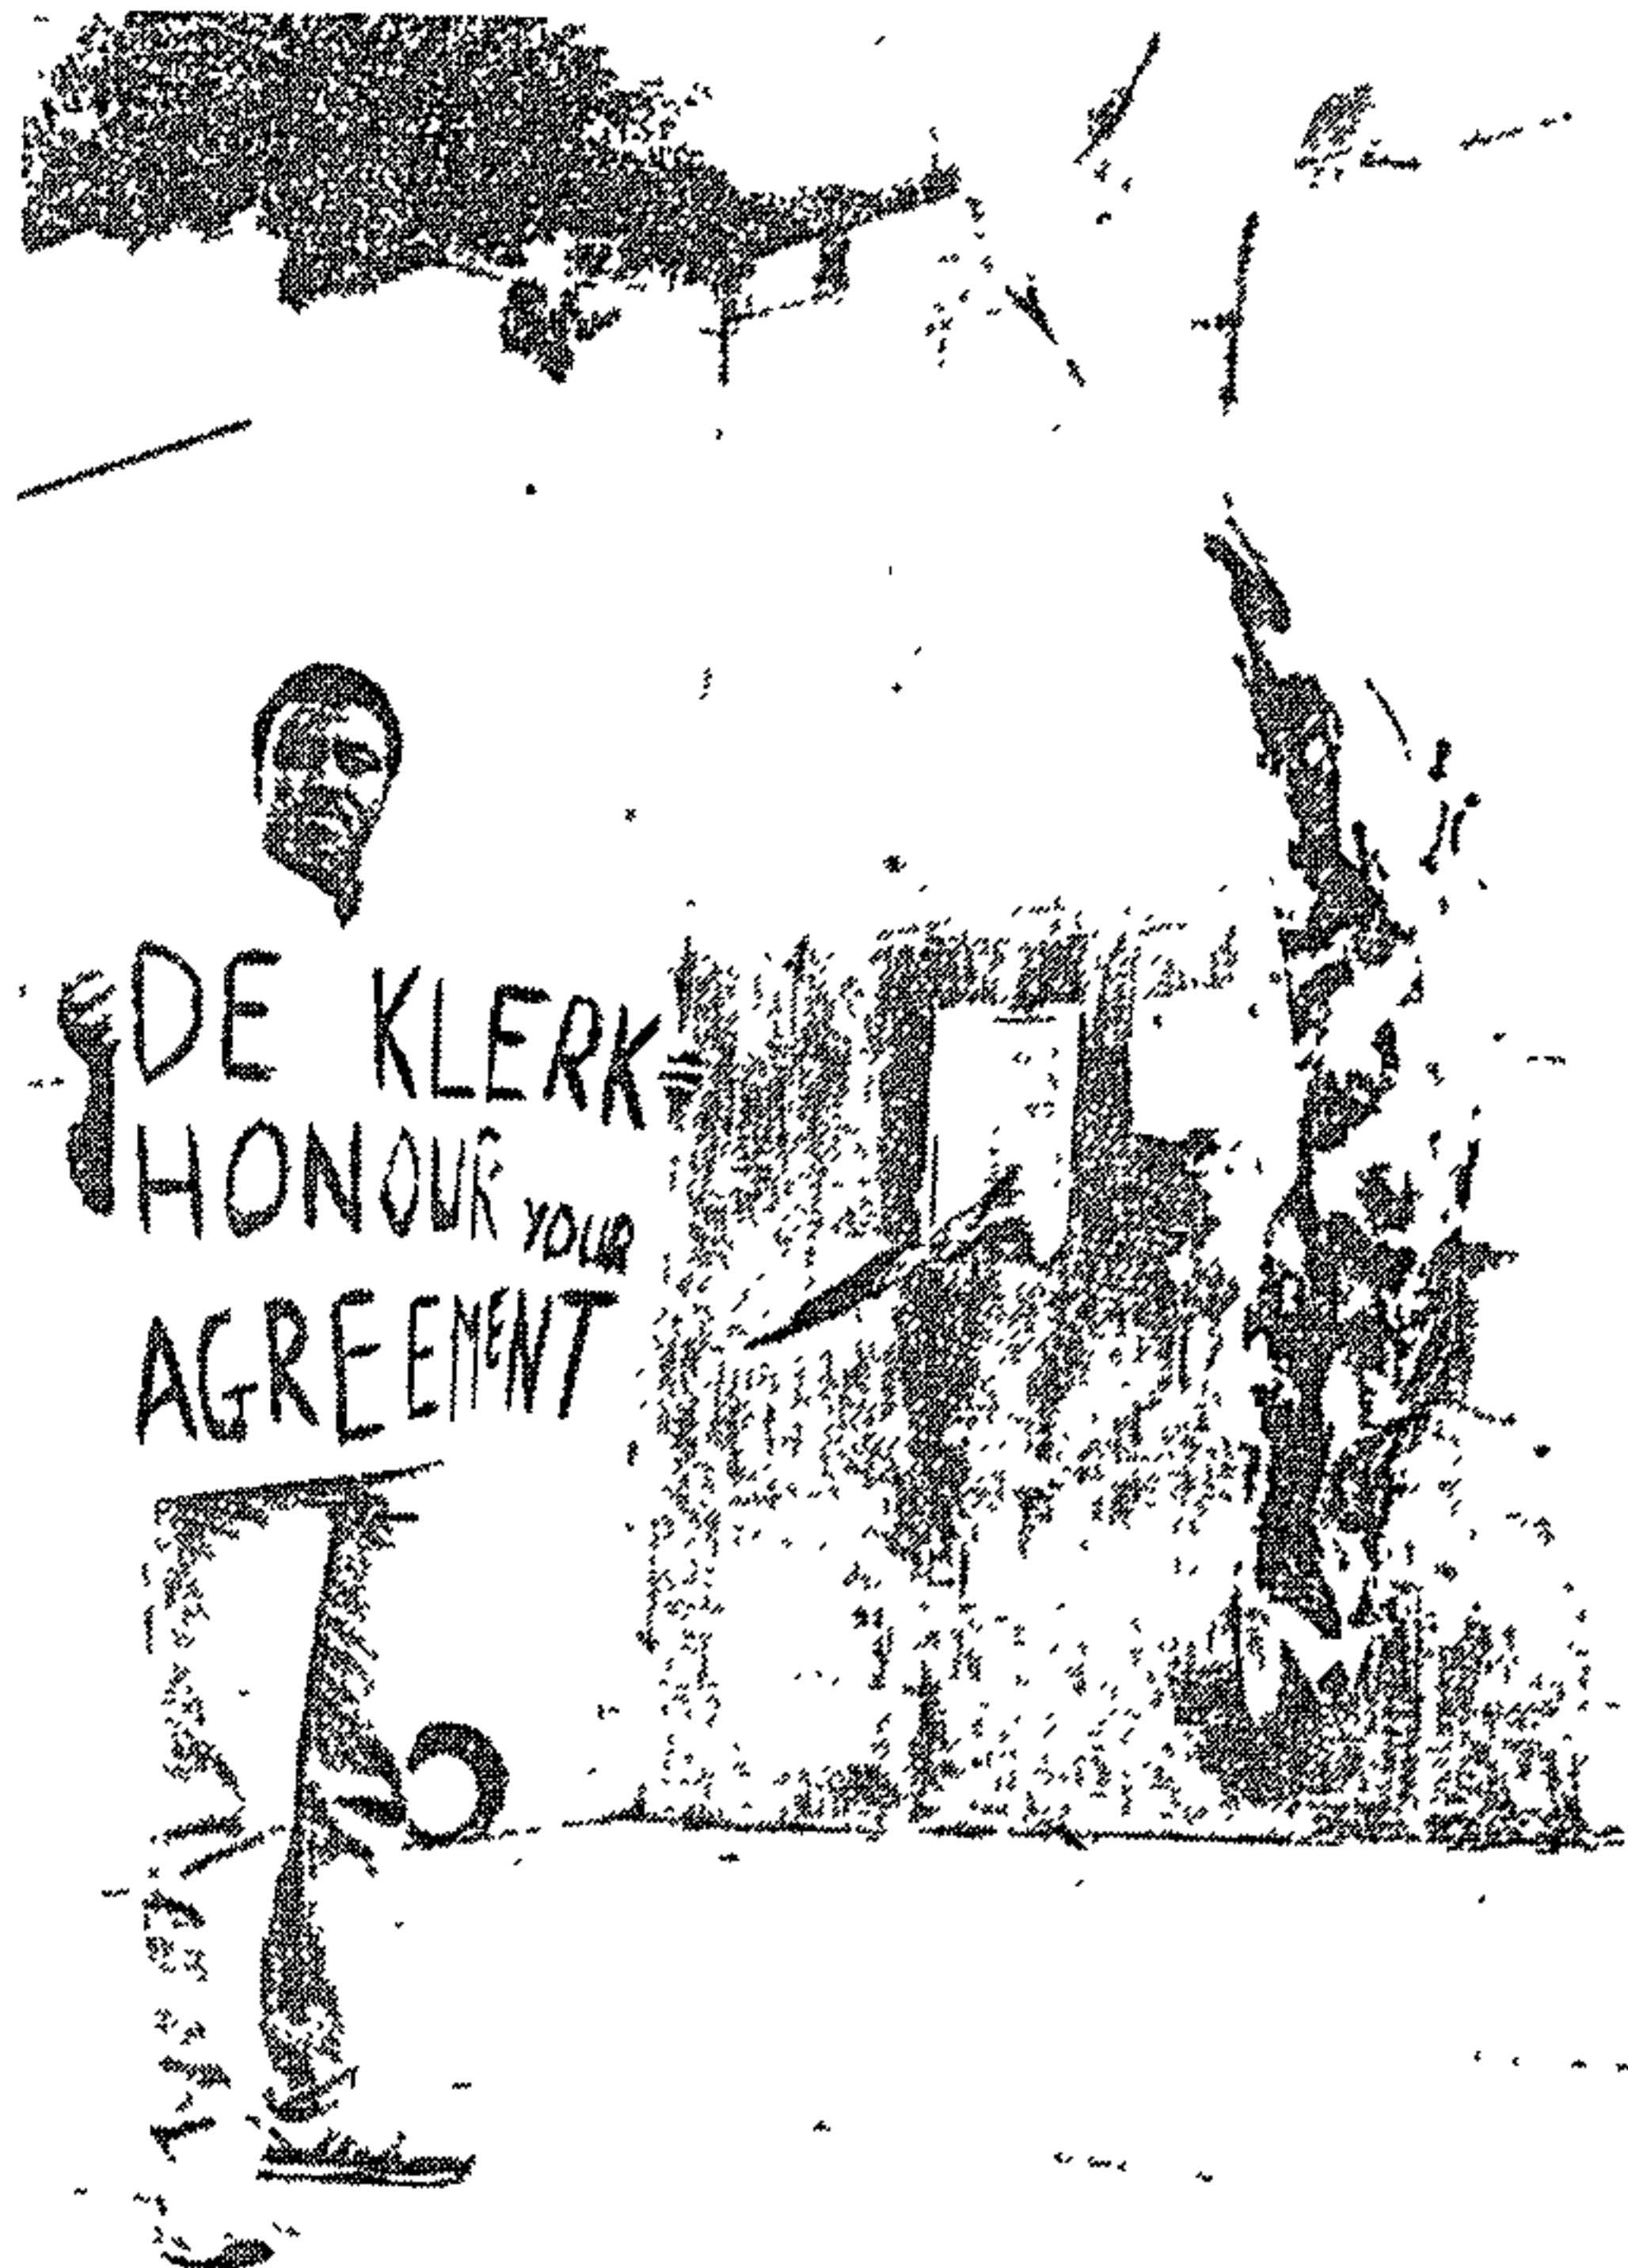 DE KLERK
HONOUR YOUR
AGREEMENT